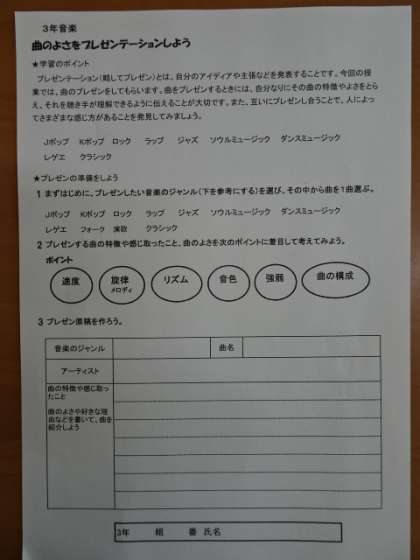 ３年音楽
曲のよさをプレゼンテーションしよう
★学習のポイント
プレゼンテーション（略してプレゼン）とは、自分のアイディアや主張などを発表することです。今回の授
業では、曲のプレゼンをしてもらいます。曲をプレゼンするときには、自分なりにその曲の特徴やよさをとら
え、それを聴き手が理解できるように伝えることが大切です。また、互いにプレゼンし合うことで、人によっ
てさまざまな感じ方があることを発見してみましょう。
Jポップ Kポップ ロック ラップ ジャズ ソウルミュージック ダンスミュージック
レゲエ クラシック
★プレゼンの準備をしよう
１ まずはじめに、プレゼンしたい音楽のジャンル（下を参考にする）を選び、その中から曲を１曲選ぶ。
Jポップ Kポップ ロック ラップ ジャズ ソウルミュージック ダンスミュージック
レゲエ フォーク 演歌 クラシック
２ プレゼンする曲の特徴や感じ取ったこと、曲のよさを次のポイントに着目して考えてみよう。
ポイント
速度 旋律 リズム 音色 強弱 曲の構成
メロディ
３ プレゼン原稿を作ろう。
音楽のジャンル 曲名
アーティスト
曲の特徴や感じ取っ
たこと
曲のよさや好きな理
由などを書いて、曲を
紹介しよう
３年 組 番 氏名